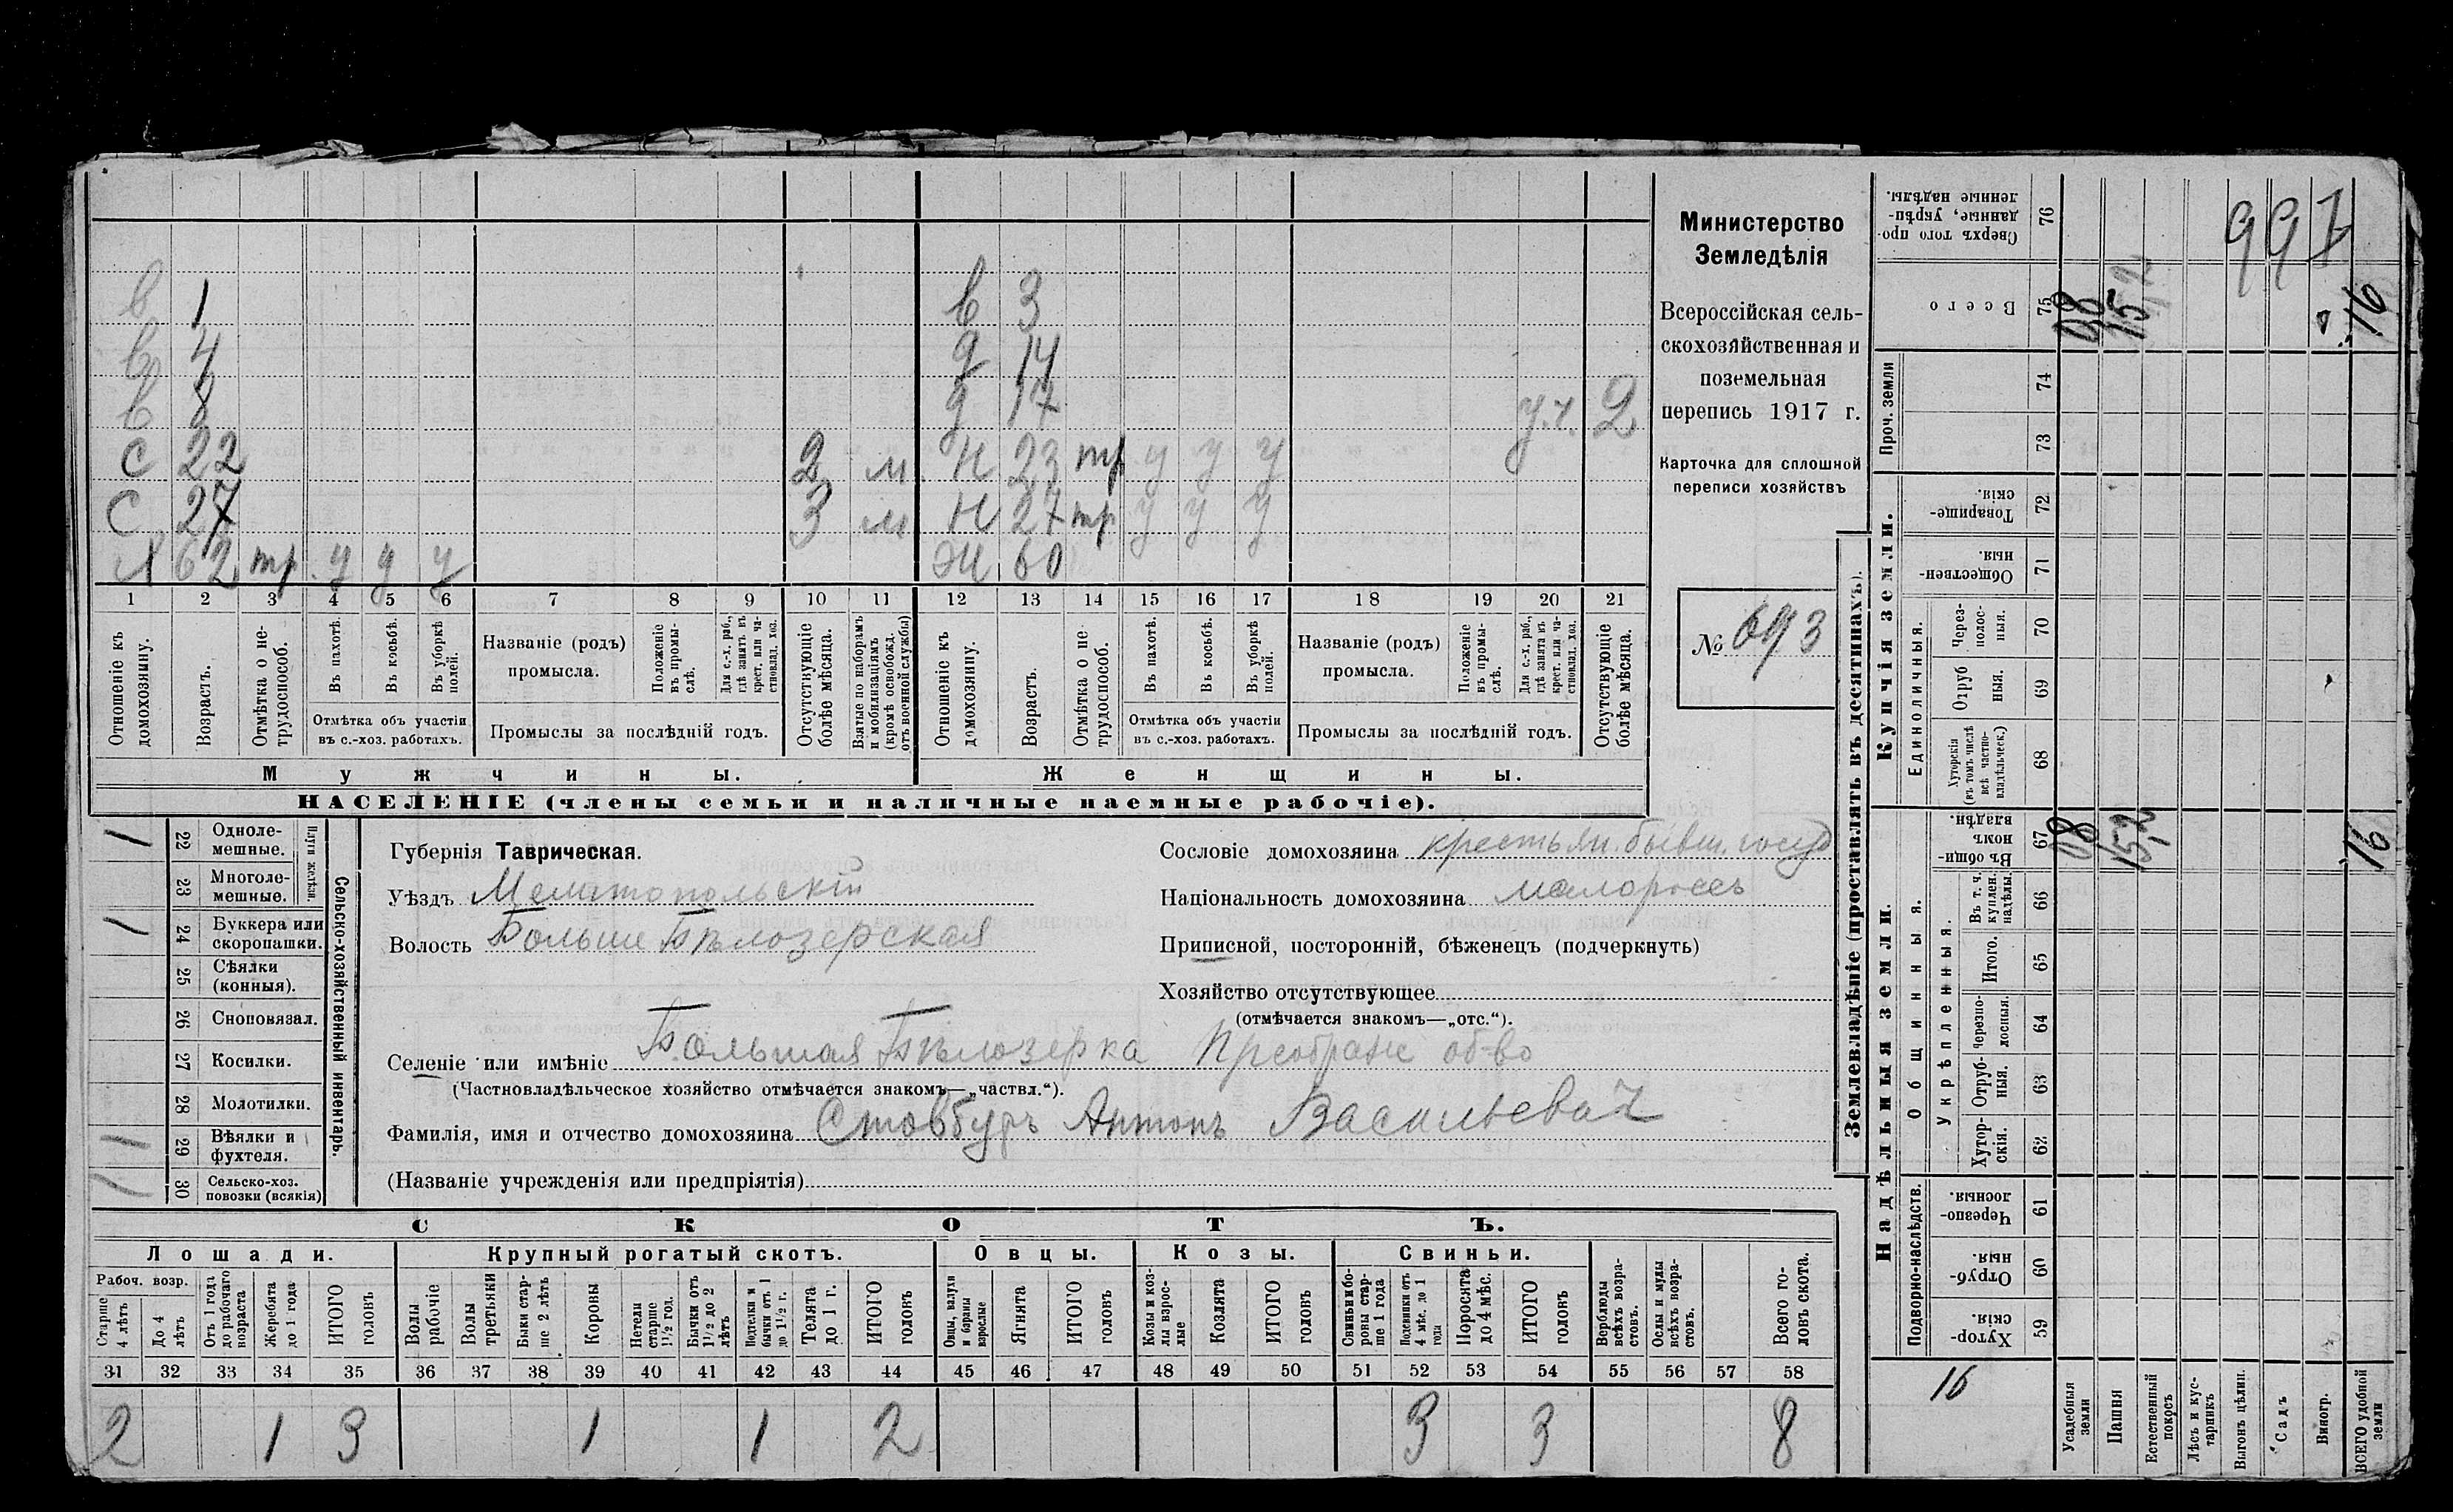 в 1 в 3
в 4 д 14
в 8 д 17 у.ч. 2
с 22 2 м н 23 тр у у у
с 27 3 м н 27 тр у у у
х 62 тр. у у у ж 60
1 2 3 4 5 6 7 8 9 10 11 12 13 14 15 16 17 18 19 20 21
Отношеніе къ домохозяину.
Возрастъ.
Отмѣтка о не-трудоспособ.
Въ пахотѣ.
Въ косьбѣ.
Въ уборкѣ полей.
Отмѣтка объ участіи
въ с.-хоз. работахъ.
Названіе (родъ)
промысла.
Положеніе въ промы-слѣ.
Для с.-х. раб., гдѣ занятъ въ крест. или ча-стновлад. хоз.
Промыслы за послѣдній годъ.
Отсутствующіе болѣе мѣсяца.
Взятые по наборамъ и мобилизаціямъ (кромѣ освобожд. отъ военной службы)
Отношеніе къ домохозяину.
Возрастъ.
Отмѣтка о не трудоспособ.
Въ пахотѣ.
Въ косьбѣ.
Въ уборкѣ полей.
Отмѣтка объ участіи
въ с.-хоз. работахъ.
Названіе (родъ)
промысла.
Положеніе въ промы-слѣ.
Для с.-х. раб., гдѣ занята въ крест. или ча-стновлад. хоз.
Промыслы за послѣдній годъ.
Отсутствующіе болѣе мѣсяца.
Мужчины. Женщины.
НАСЕЛЕНІЕ (члены семьи и наличные наемные рабочіе).
Министерство
Земледѣлія
Всероссійская сель-
скохозяйственная и
поземельная
перепись 1917 г.
Карточка для сплошной
переписи хозяйствъ
№ 693
Сельско-хозяйственный инвентарь.
Плуги желѣзн.
1 22 Одноле-мешные.
23 Многоле-мешные.
1 24 Буккера или скоропашки.
25 Сѣялки (конныя).
26 Сноповязал.
27 Косилки.
28 Молотилки.
1 29 Вѣялки и фухтеля.
1 30 Сельско-хоз. повозки (всякія)
Губернія Таврическая.
Уѣздъ Мелитопольскій
Волость Больше Бѣлозерская
Сословіе домохозяина крестьян. бывш. госуд
Національность домохозяина малороссъ
Приписной, посторонній, бѣженецъ (подчеркнуть)
Хозяйство отсутствующее
(отмѣчается знакомъ—„отс.“).
Селеніе или имѣніе Большая Бѣлозерка Преображ об-во
(Частновладѣльческое хозяйство отмѣчается знакомъ—„частвл.“).
Фамилія, имя и отчество домохозяина Стовбуръ Антонъ Васильевич
(Названіе учрежденія или предпріятія)
СКОТЪ.
Лошади. Крупный рогатый скотъ. Овцы. Козы. Свиньи.
Рабоч. возр.
Старше 4 лѣтъ
До 4 лѣтъ
Отъ 1 года до рабочаго возраста
Жеребята до 1 года
ИТОГО головъ
Волы рабочіе
Волы третьяки
Быки стар-ше 2 лѣтъ
Коровы
Нетели старше 1½ год.
Бычки отъ 1½ до 2 лѣтъ
Подтелки и бычки отъ 1 до 1½ г.
Телята до 1 г.
ИТОГО головъ
Овцы, валухи и бараны взрослые
Ягнята
ИТОГО головъ
Козы и коз-лы взрос-лые
Козлята
ИТОГО головъ
Свиньи и бо-ровы стар-ше 1 года
Подсвинки отъ 4 мѣс. до 1 года
Поросята до 4 мѣс.
ИТОГО головъ
Верблюды всѣхъ возра-стовъ.
Ослы и мулы всѣхъ возра-стовъ.
Всего го-ловъ скота.
31 32 33 34 35 36 37 38 39 40 41 42 43 44 45 46 47 48 49 50 51 52 53 54 55 56 57 58
2 1 3 1 1 2 3 3 8
Землевладѣніе (проставлять въ десятинахъ).
Купчія земли.
Надѣльныя земли.
Сверхъ того про-данные, укрѣп-ленные надѣлы. 76
997
Всего 75 08 15,2 16
Проч. земли
74
73
Товарище-скія. 72
Обществен-ныя. 71
Единоличныя.
Через-полос-ныя. 70
Отруб ныя. 69
Хуторскія (въ томъ числѣ всѣ частно-владѣльческ.) 68
Въ общин-номъ владѣн. 67 08 15,2 16
Общинныя.
Укрѣпленныя.
Въ т. ч. куплен. надѣлы. 66
Итого. 65
Черезпо-лосныя. 64
Отруб-ныя. 63
Хутор-скія. 62
Подворно-наслѣдств.
Черезпо-лосныя. 61
Отруб-ныя. 60
Хутор-скія. 59
16
Усадебныя земли
Пашня
Естественный покосъ
Лѣсъ и кус-тарникъ
Выгонъ цѣлин.
Садъ
Виногр.
ВСЕГО удобной земли